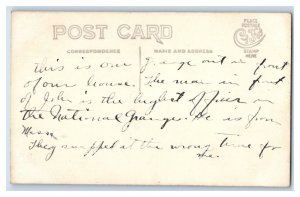 POST CARD
CORRESPONDENCE
NAME AND ADDRESS
PLACE
POSTAGE
STAMP
HERE
This is our grange out in front
of our house. The man in front
of John is the highest officer in
the National Grange. He is from
Mass.
They snapped at the wrong time for
me.